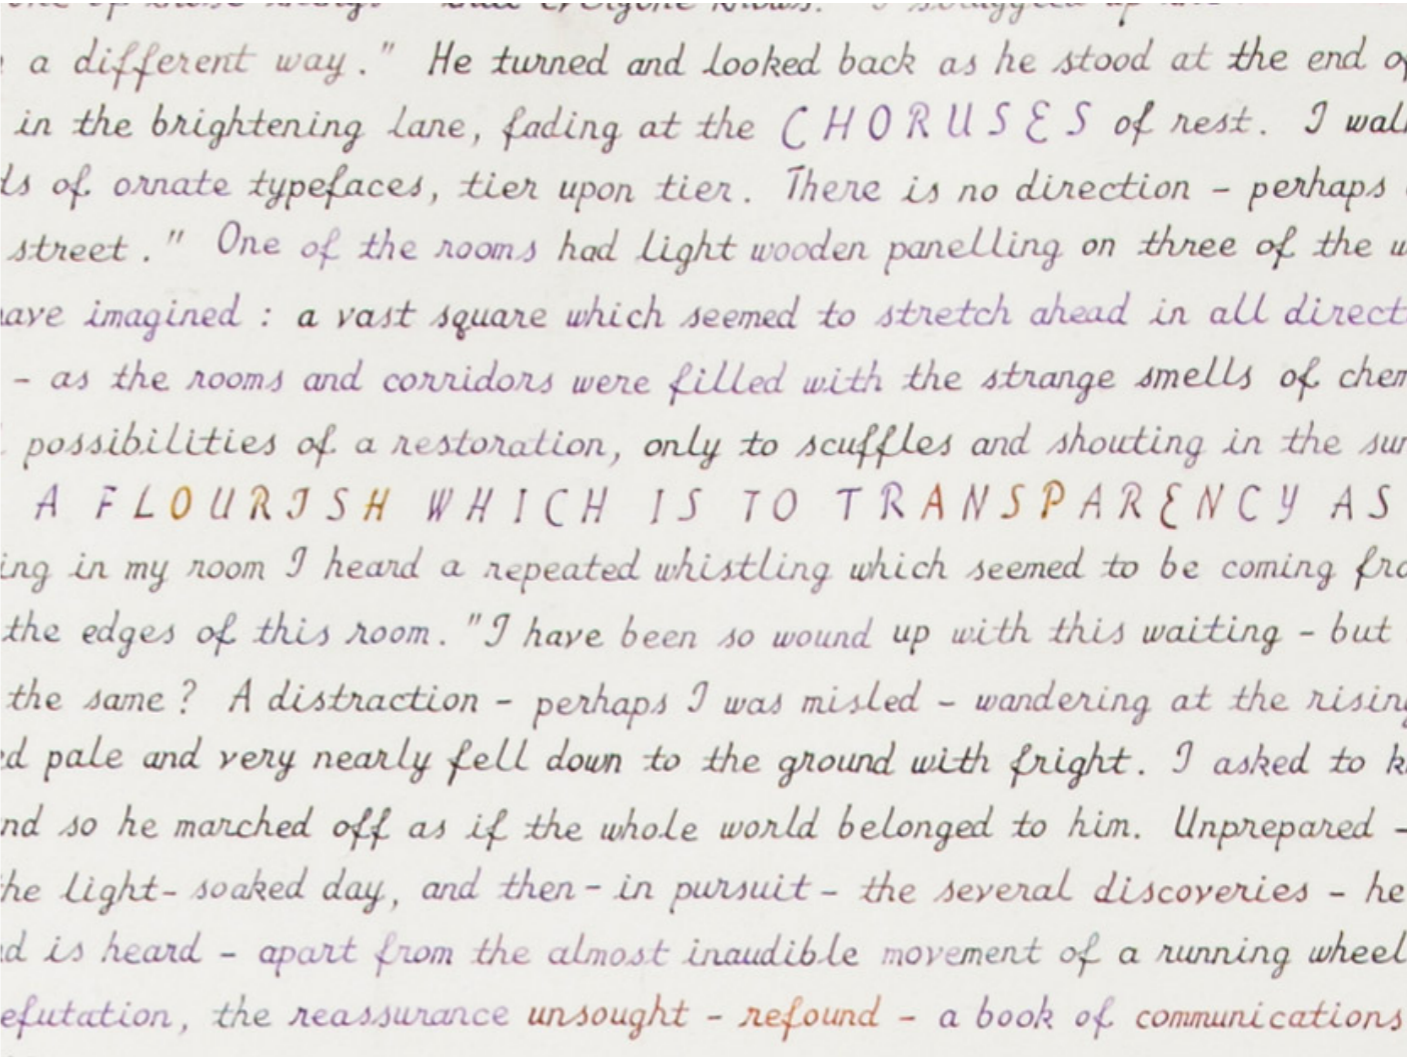 everyone knows." I struggled up
a different way." He turned and looked back as he stood at the end of
in the brightening lane, fading at the CHORUSES of rest. I
of ornate typefaces, tier upon tier. There is no direction - perhaps
street." One of the rooms had light wooden panelling on three of the
imagined : a vast square which seemed to stretch ahead in all
- as the rooms and corridors were filled with the strange smells of
possibilities of a restoration, only to scuffles and shouting in the
A FLOURISH WHICH IS TO TRANSPARENCY AS
in my room I heard a repeated whistling which seemed to be coming
the edges of this room. "I have been so wound up with this waiting - but
the same? A distraction - perhaps I was misled - wandering at the rising
pale and very nearly fell down to the ground with fright. I asked to
so he marched off as if the whole world belonged to him. Unprepared -
the light-soaked day, and then - in pursuit - the several discoveries - he
is heard - apart from the almost inaudible movement of a running wheel
efutation, the reassurance unsought - refound - a book of communications